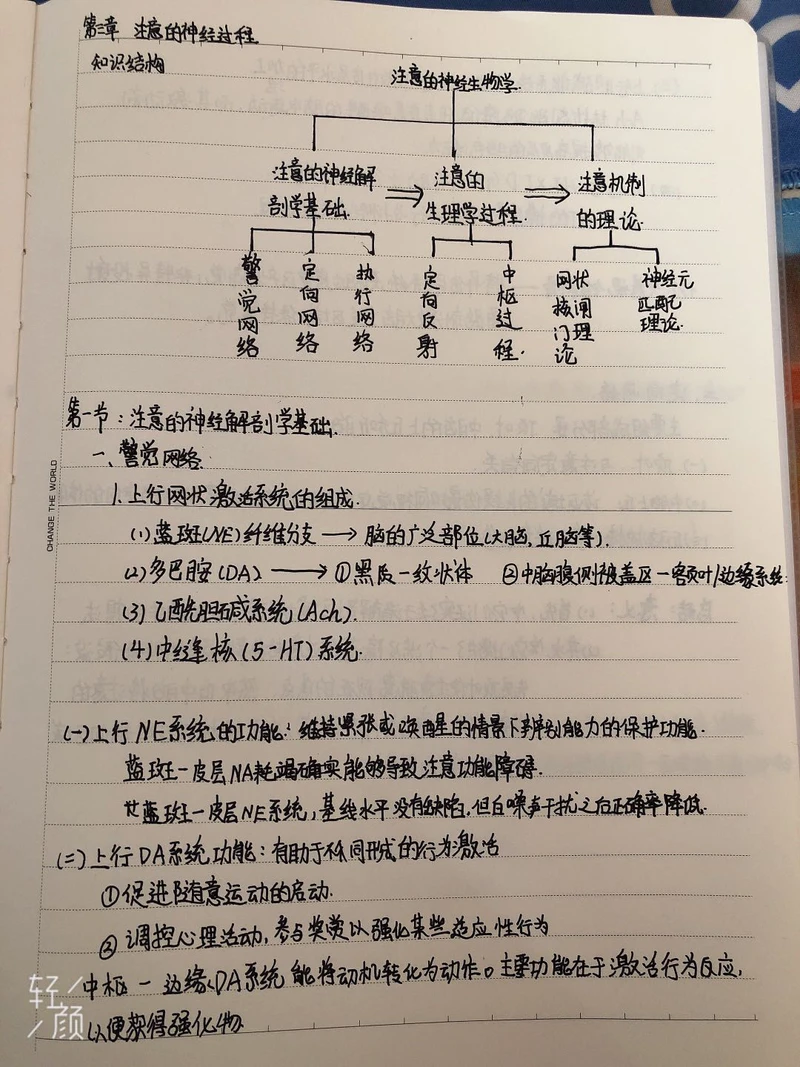 第三章 注意的神经过程
知识结构
注意的神经生物学
注意的神经解剖学基础
注意的生理学过程
注意机制的理论
警觉网络
定向网络
执行网络
定向反射
中枢过程
网状核闸门理论
神经元匹配理论
第一节:注意的神经解剖学基础
一、警觉网络
1.上行网状激活系统的组成
(1)蓝斑(NE)纤维分支→脑的广泛部位(大脑,丘脑等).
(2)多巴胺(DA)→①黑质—纹状体 ②中脑腹侧被盖区—额叶/边缘系统
(3)乙酰胆碱系统(Ach).
(4)中缝核(5-HT)系统.
(一)上行NE系统的功能:维持紧张或唤醒的情景下辨别能力的保护功能.
蓝斑—皮层NA耗竭确实能够导致注意功能障碍.
蓝斑—皮层NE系统,基线水平没有缺陷,但白噪声干扰之后正确率降低.
(二)上行DA系统功能:有助于不同形成的行为激活
①促进随意运动的启动.
②调控心理活动,参与奖赏以强化某些适应性行为
中枢—边缘DA系统能将动机转化为动作。主要功能在于激活行为反应,
以便获得强化物.
CHANGE THE WORLD
轻
颜